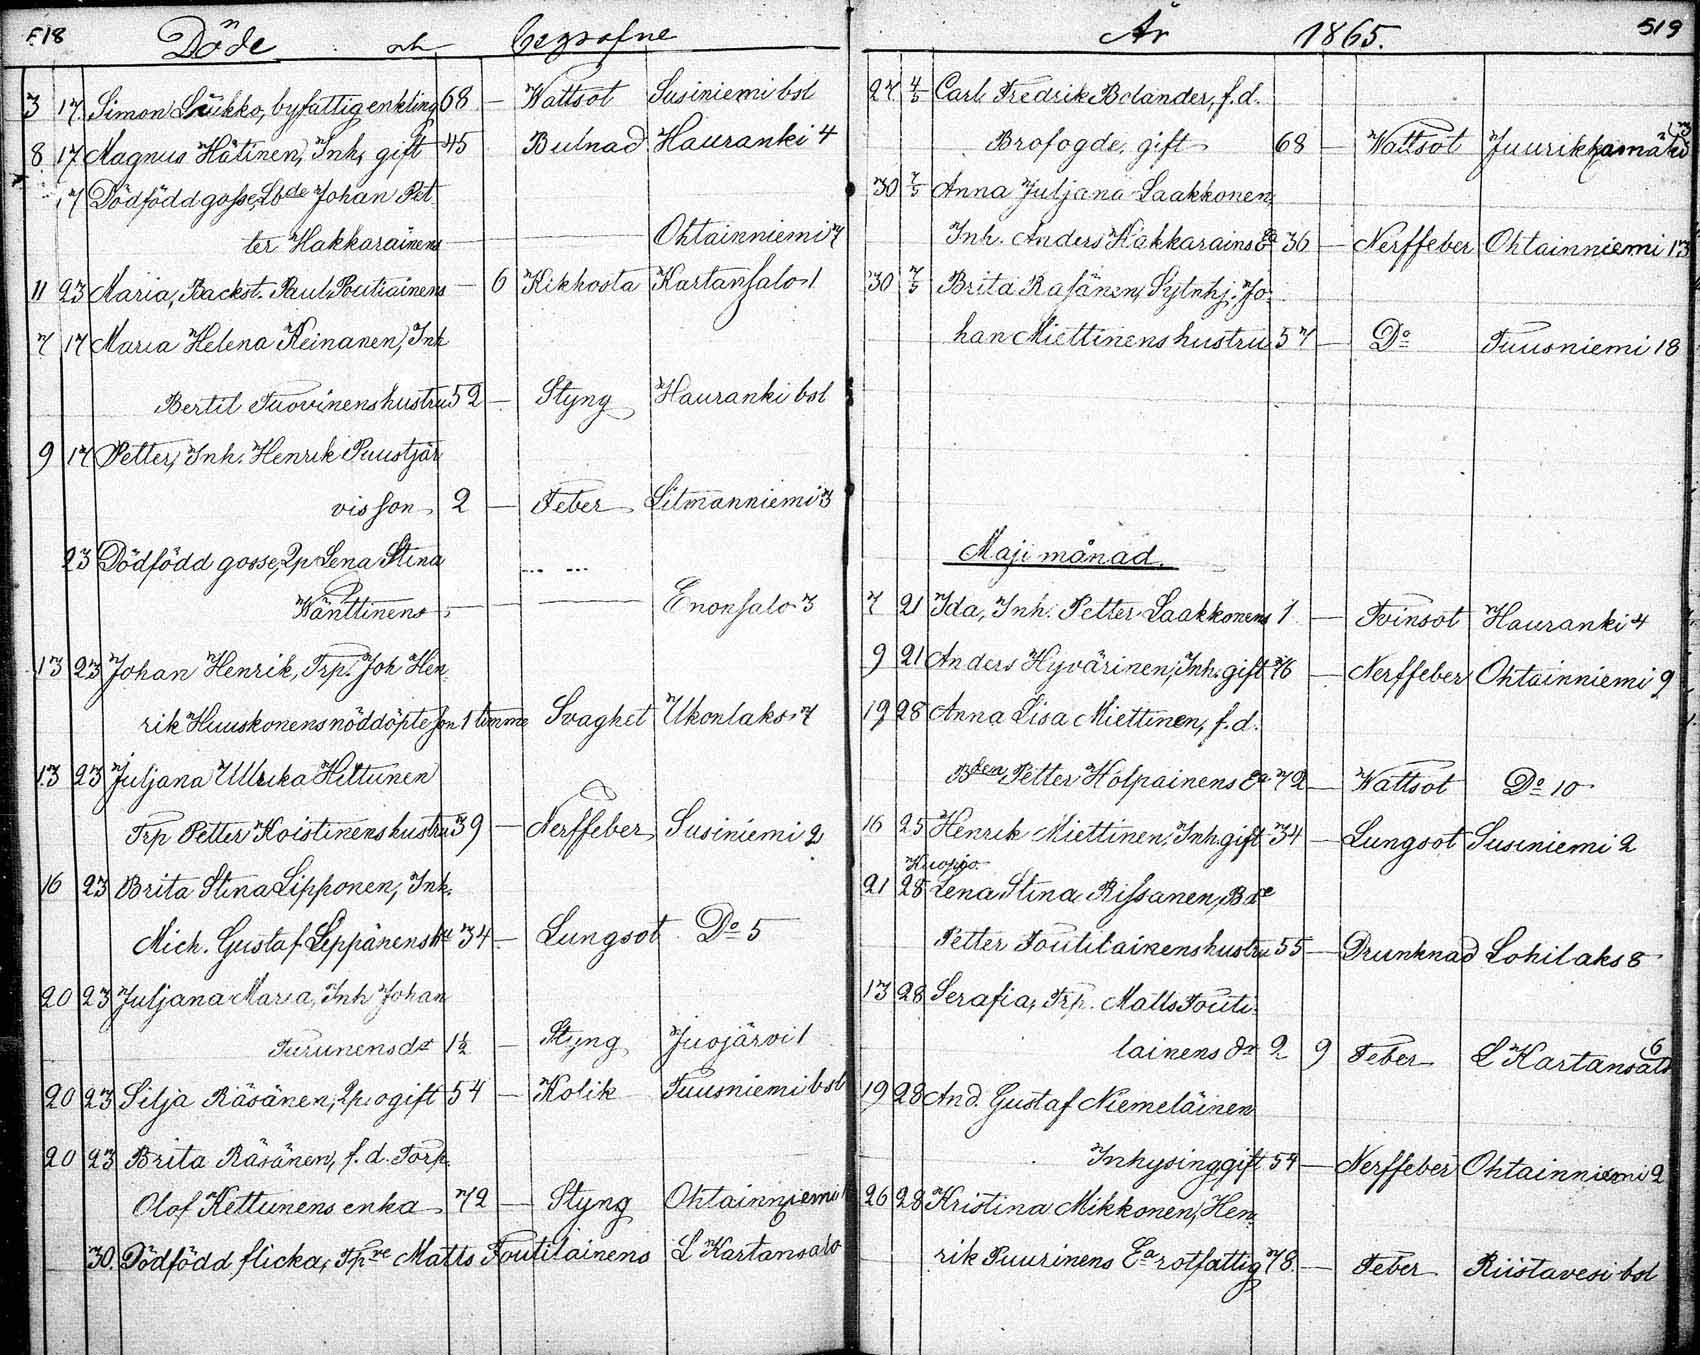 518 Döde och begrafne
3 17 Simon Liukko, byfattig enkling 68 — Wattsot Susiniemi bol
8 17 Magnus Hätinen, Inh, gift 45 Bulnad Hauranki 4
17 Dödfödd gosse, Lbde Johan Pet
ter Hakkarainens — — Ohtainniemi 7
11 23 Maria, Backst. Paul Poutiainens — 6 Kikhosta Kartansalo 1
7 17 Maria Helena Keinanen, Inh
Bertil Tuovinens hustru 52 — Styng Hauranki bol
9 17 Petter, Inh. Henrik Puustjär
vis son 2 — Feber Litmanniemi 3
23 Dödfödd gosse, Qp Lena Stina
Wänttinens — — Enonsalo 3
13 23 Johan Henrik, Trp. Joh Hen
rik Huuskonens nöddöpte son 1 timme Svaghet Ukonlaks 7
13 23 Juljana Ullrika Hiltunen
Trp Petter Koistinens hustru 39 — Nerffeber Susiniemi 2
16 23 Brita Stina Lipponen, Inh.
Mich. Gustaf Leppänens hu 34 — Lungsot Do 5
20 23 Juljana Maria, Inh Johan
Turunens dr 1½ — Styng Juojärvi 1
20 23 Silja Räsänen, Qp. ogift 54 — Kolik Tuusniemi bol
20 23 Brita Räsänen, f. d. Torp.
Olof Kettunens enka 72 — Styng Ohtainniemi
30. Dödfödd flicka, Tpre Matts Toutilainens L Kartansalo
År 1865. 519
27 4/5 Carl Fredrik Bolander, f. d.
Brofogde, gift 68 — Wattsot Juurikkamäki 3
30 7/5 Anna Juljana Laakkonen
Inh. Anders Hakkarains Ea 36 — Nerffeber Ohtainniemi 13
30 7/5 Brita Rasänen, Sytnhj. Jo
han Miettinens hustru 57 — Do Tuusniemi 18
Maji månad.
7 21 Ida, Inh. Petter Laakkonens 1 — Tvinsot Hauranki 4
9 21 Anders Hyvärinen, Inh. gift 76 — Nerffeber Ohtainniemi 9
19 28 Anna Lisa Miettinen, f. d.
Bden Petter Holpainens Ea 72 — Wattsot Do 10
16 25 Henrik Miettinen, Inh gift 34 — Lungsot Susiniemi 2
Kuopio
21 28 Lena Stina Rissanen, Bde
Petter Toutilainens hustru 55 — Drunknad Lohilaks 8
13 28 Serafia, Trp. Matts Touti
lainens dr 2 9 Feber L Kartansalo 6
19 28 And. Gustaf Niemeläinen
Inhysing gift 54 — Nerffeber Ohtainniemi 2
26 28 Kristina Mikkonen, Hen
rik Puurinens Ea rotfattig 78. — Feber Riistavesi bol